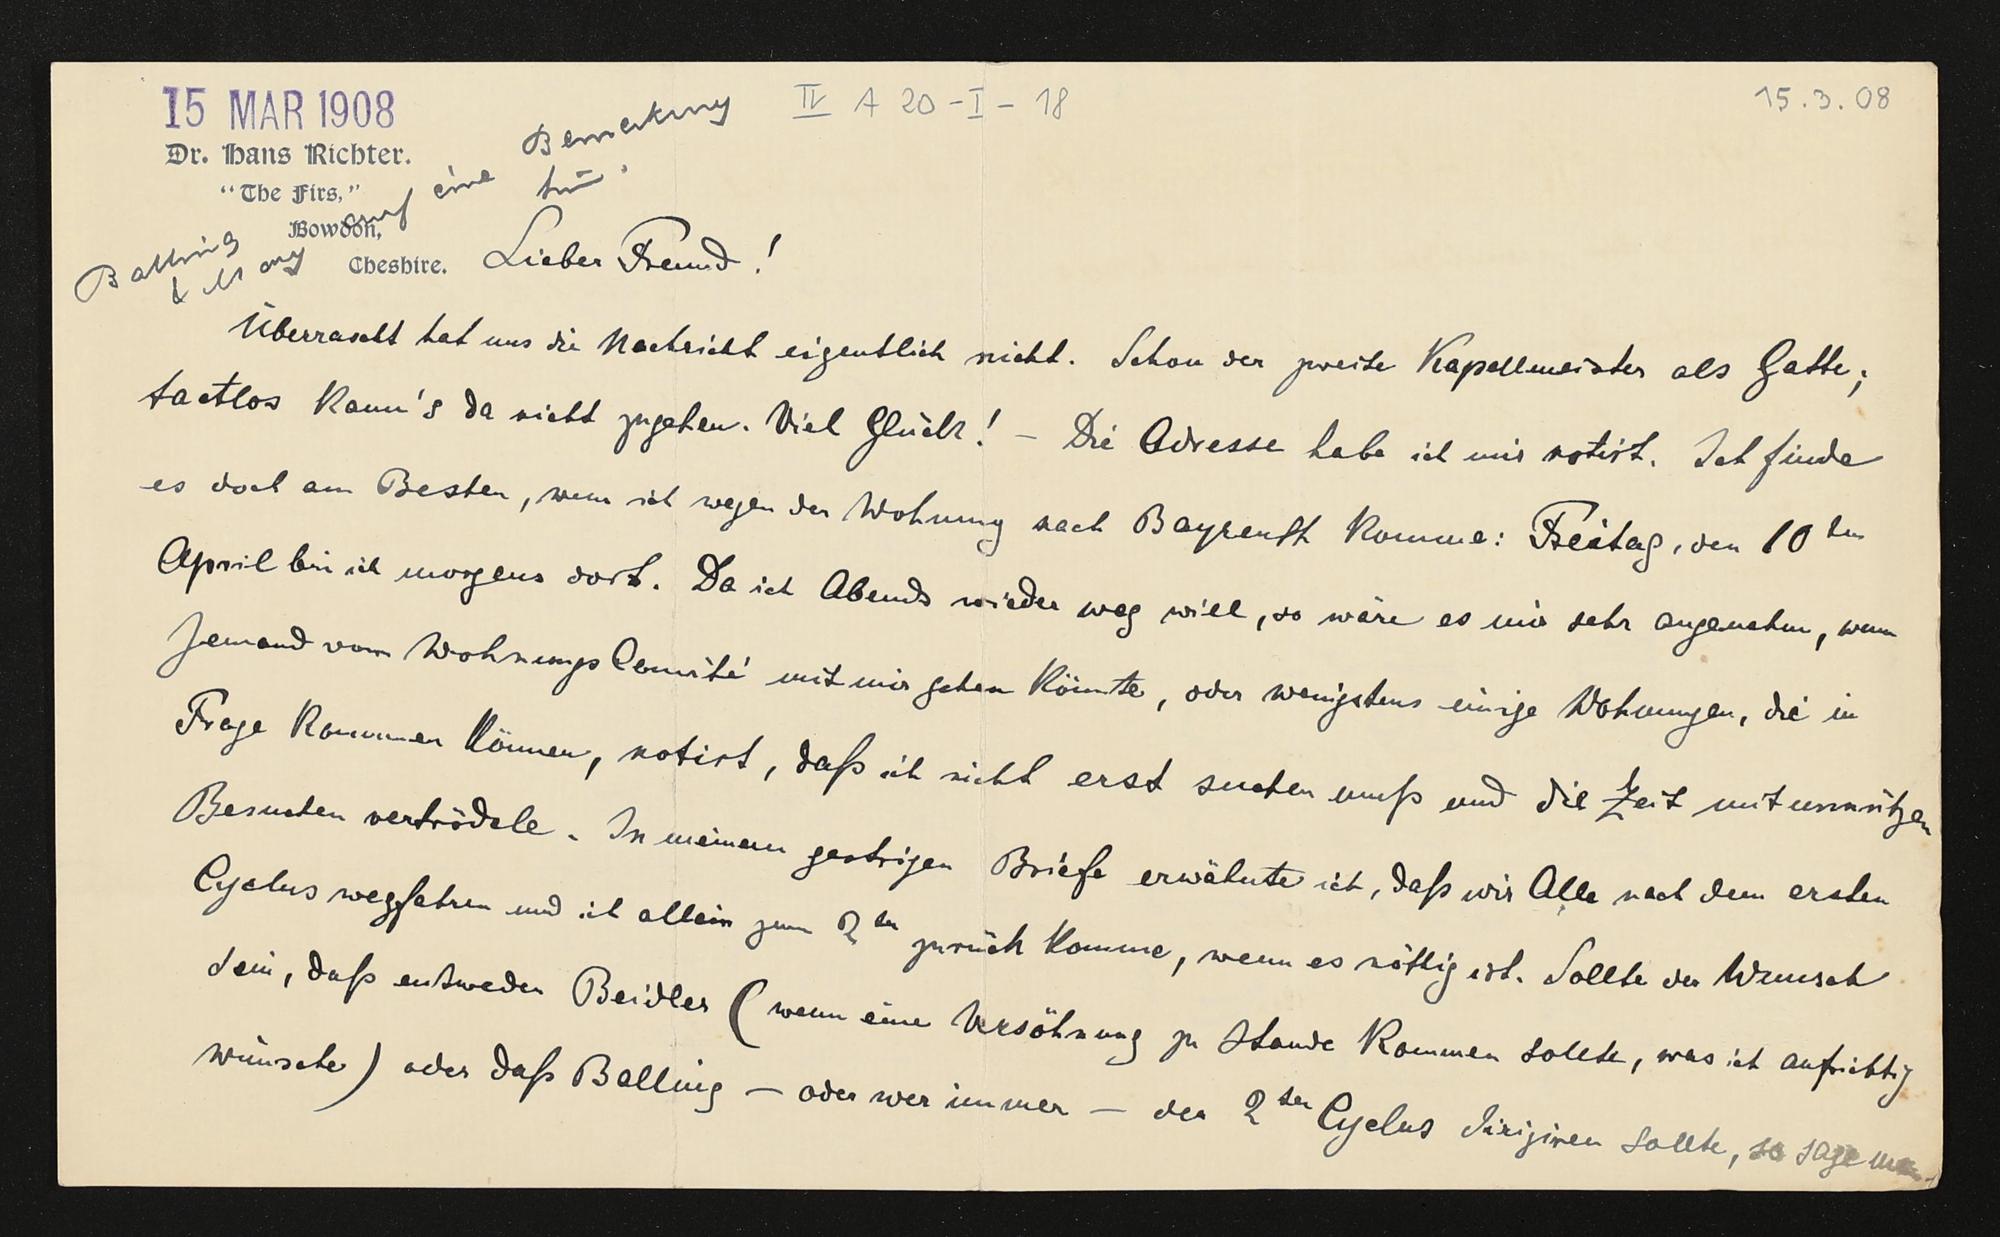 15 MAR 1908
IV A 20-I-18
15.3.08
Dr. Hans Richter.
"The Firs,"
Bowdon,
Cheshire.
auf eine Bemerkung
Balling
Lieber Freund!
Überrascht hat uns die Nachricht eigentlich nicht. Schon der zweite Kapellmeister als Gatte;
tactlos kann's da nicht zugehen. Viel Glück! – Die Adresse habe ich mir notirt. Ich finde
es doch am Besten, wenn ich wegen der Wohnung nach Bayreuth komme: Freitag, den 10ten
April bin ich morgens dort. Da ich Abends wieder weg will, so wäre es mir sehr angenehm, wenn
Jemand vom WohnungsComité mit mir gehen könnte, oder wenigstens einige Wohnungen, die in
Frage kommen können, notirt, daß ich nicht erst suchen muß und die Zeit mit unnützen
Besuchen vertrödele. In meinem gestrigen Briefe erwähnte ich, daß wir Alle nach dem ersten
Cyclus wegfahren und ich allein zum 2ten zurück komme, wenn es nöthig ist. Sollte der Wunsch
sein, daß entweder Beidler (wenn eine Versöhnung zu Stande kommen sollte, was ich aufrichtig
wünsche) oder daß Balling – oder wer immer – den 2ten Cyclus dirigiren sollte, so sage man